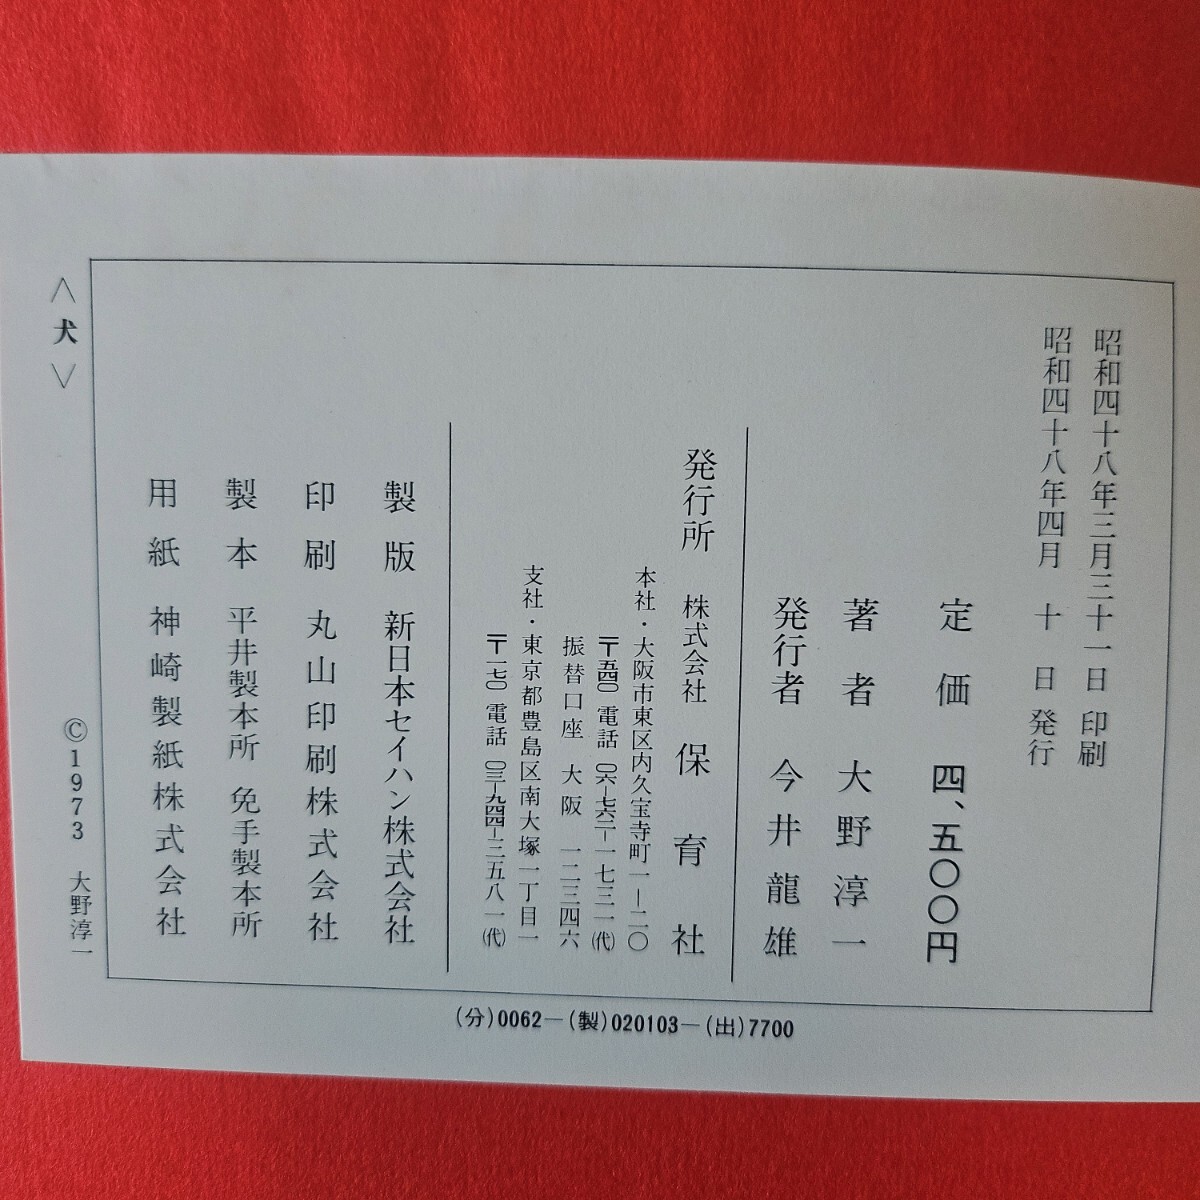 昭和四十八年三月三十一日 印刷
昭和四十八年四月 十 日 発行
定価 四、五〇〇円
著者 大野淳一
発行者 今井龍雄
発行所 株式会社 保育社
本社・大阪市東区内久宝寺町一―二〇
〒五四〇 電話 〇六―七六二―一七三一(代)
振替口座 大阪 一二三四六
支社・東京都豊島区南大塚一丁目一
〒一七〇 電話 〇三―九四四―三五八一(代)
製版 新日本セイハン株式会社
印刷 丸山印刷株式会社
製本 平井製本所 免手製本所
用紙 神崎製紙株式会社
〈犬〉
©1973 大野淳一
(分)0062―(製)020103―(出)7700